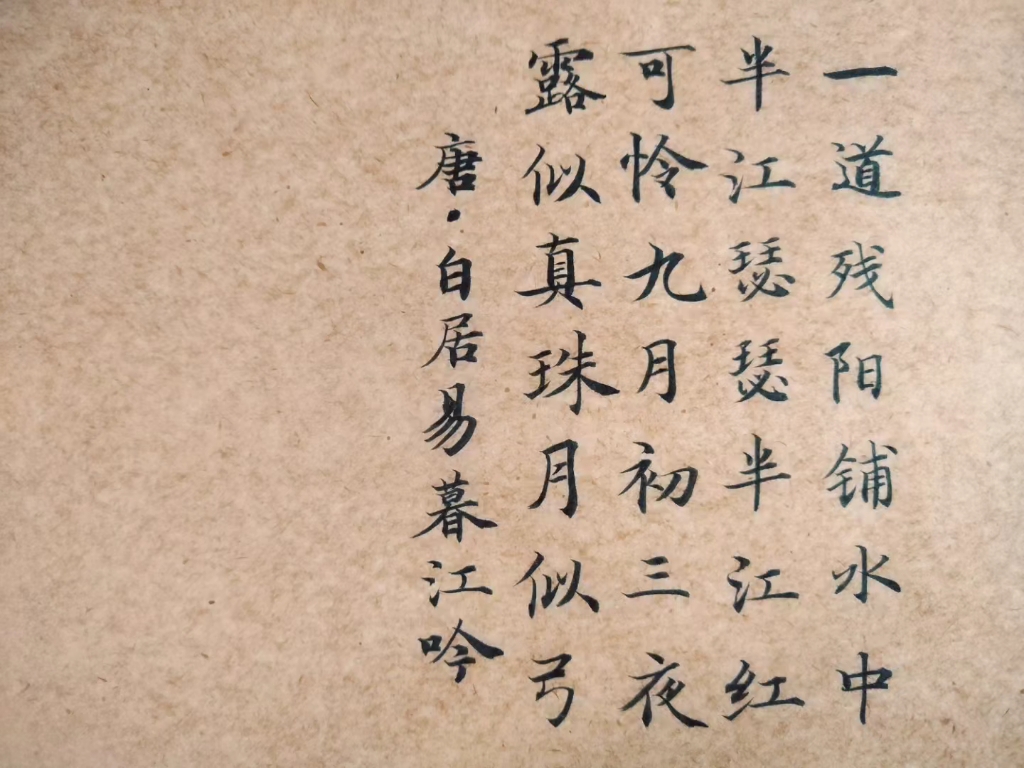 一道残阳铺水中
半江瑟瑟半江红
可怜九月初三夜
露似真珠月似弓
唐·白居易暮江吟